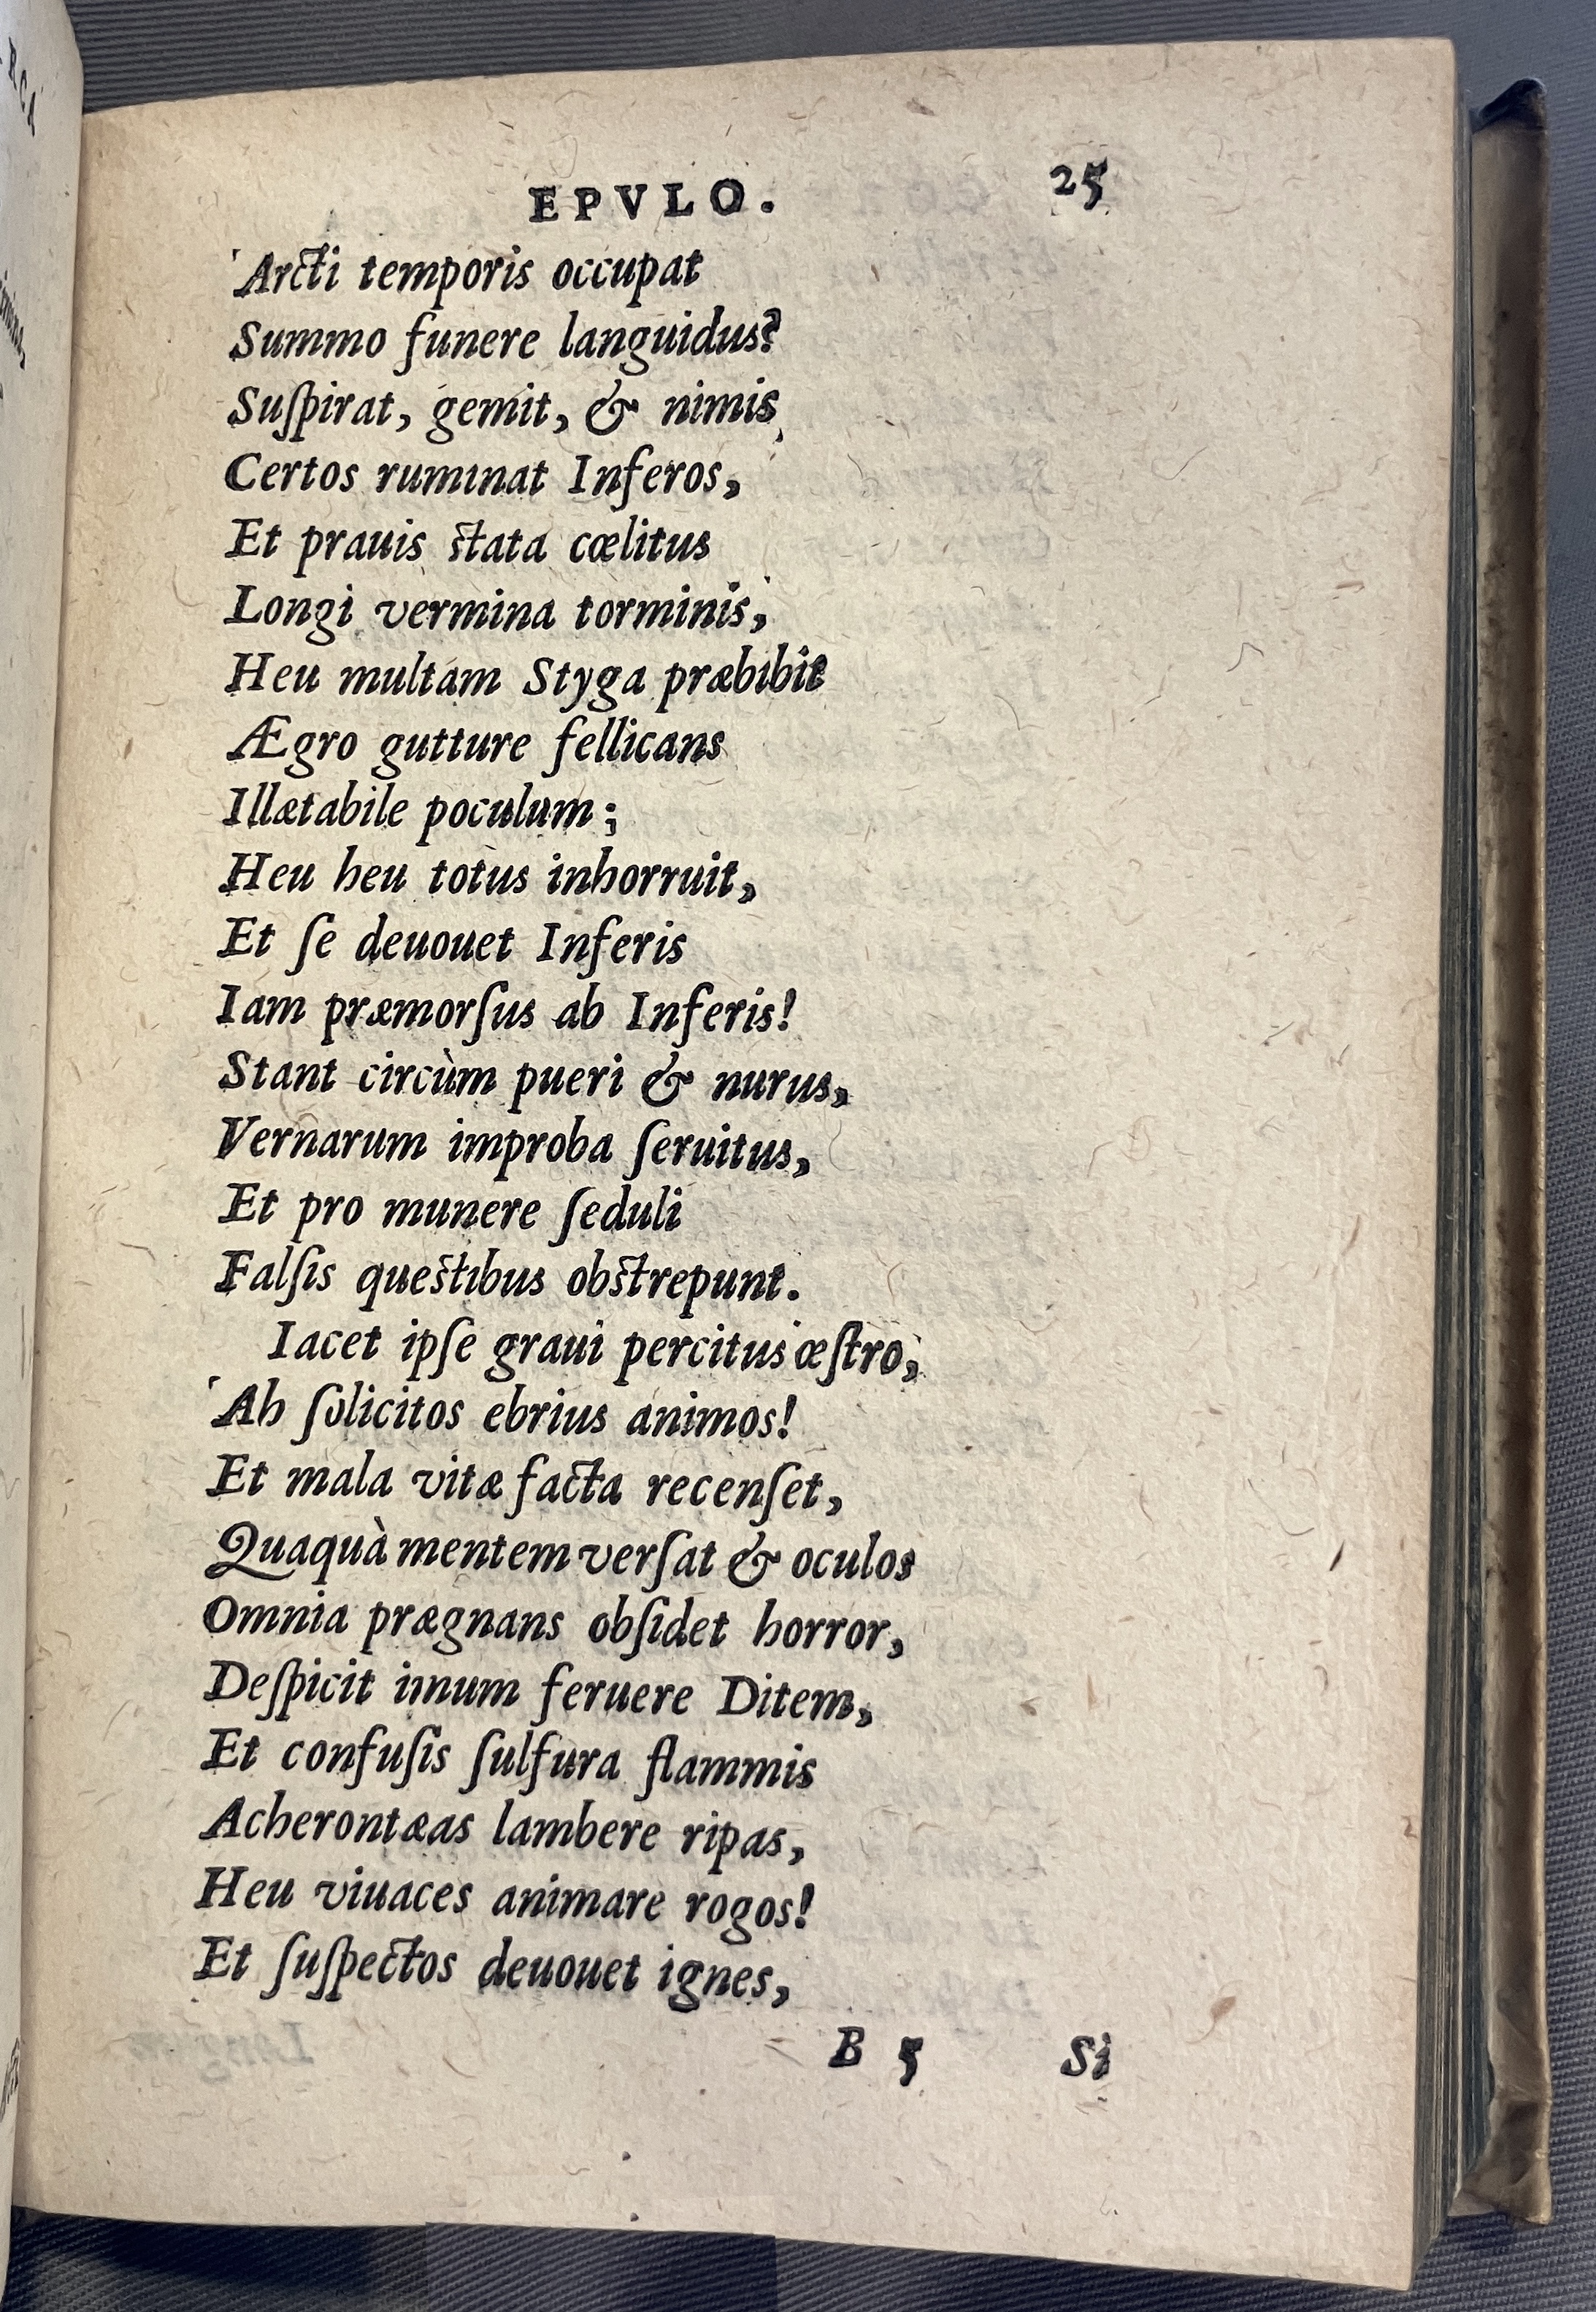 EPVLO. 25
Arcti temporis occupat
Summo funere languidus?
Suſpirat, gemit, & nimis,
Certos ruminat Inferos,
Et prauis stata cœlitus
Longi vermina torminis,
Heu multam Styga præbibit
Ægro gutture fellicans
Illætabile poculum;
Heu heu totus inhorruit,
Et ſe deuouet Inferis
Iam præmorſus ab Inferis!
Stant circùm pueri & nurus,
Vernarum improba ſeruitus,
Et pro munere ſeduli
Falſis questibus obstrepunt.
Iacet ipſe graui percitus œſtro,
Ah ſolicitos ebrius animos!
Et mala vitæ facta recenſet,
Quaquà mentem verſat & oculos
Omnia prægnans obſidet horror,
Deſpicit imum feruere Ditem,
Et confuſis ſulfura flammis
Acherontæas lambere ripas,
Heu viuaces animare rogos!
Et ſuſpectos deuouet ignes,
B 5 Si